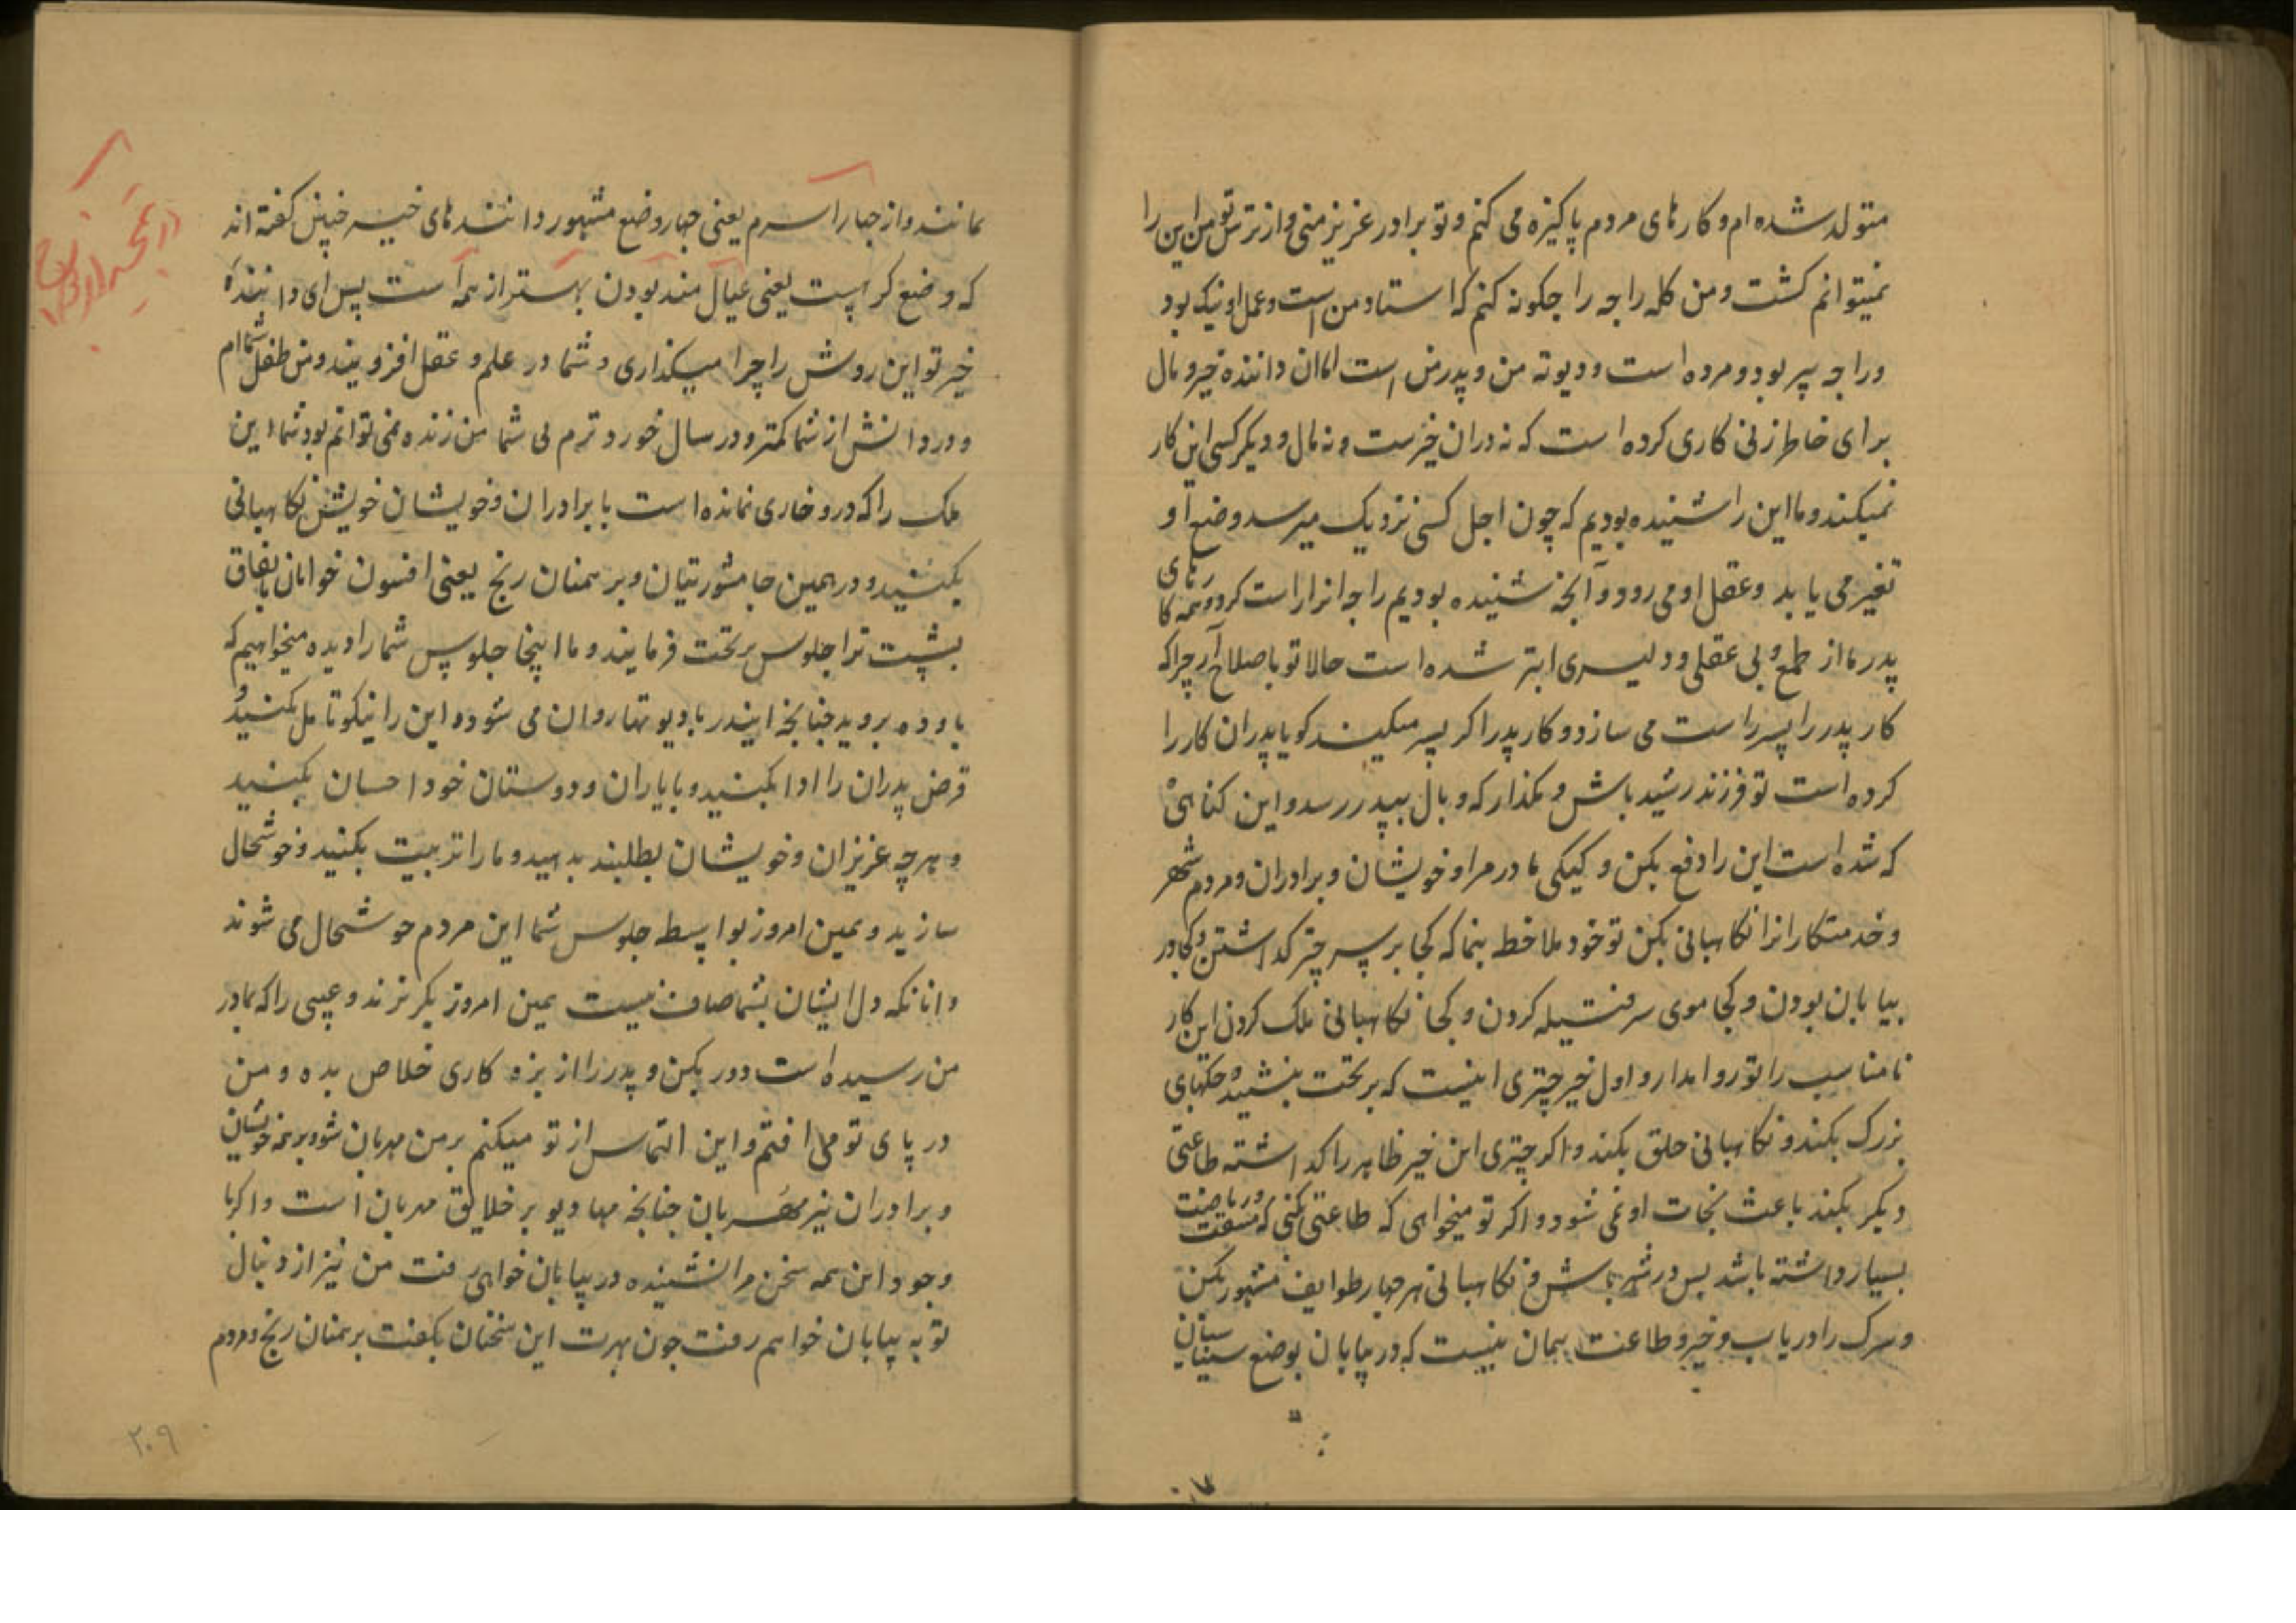 متولد شده ام و کارهای مردم پاکیزه می کنم و تو برادر عزیز منی و از ترس تو من این را
نمیتوانم کشت و من کله راجه را چکونه کنم که استاد من است و عمل او نیک بود
و راجه پیر بود و مرده است و دیوته من و پدر من است اما ان داننده خیر و مال
برای خاطر زنی کاری کرده است که نه دران خیرست و نه مال و دیکر کسی این کار
نمیکند و ما این را شنیده بودیم که چون اجل کسی نزدیک میرسد وضع او
تغیر می یابد و عقل او می رود و آنچه شنیده بودیم راجه انرا راست کرد و همه کارهای
پدر ما از طمع و بی عقلی و دلیری ابتر شده است حالا تو باصلاح آر چرا که
کار پدر را پسر راست می سازد و کار پدر اکر پسر میکند کویا پدران کار را
کرده است تو فرزند رشید باش و مکذار که وبال بپدر رسد و این کناهی
که شده است این را دفع بکن و کیکی مادر مرا و خویشان و برادران و مردم شهر
و خدمتکارانرا نکاهبانی بکن تو خود ملاحظه بنما که کجا بر سر چتر کداشتن و کجا در
بیابان بودن و کجا موی سر فتیله کردن و کجا نکاهبانی ملک کردن این کار
نامناسب را تو روا مدار و اول خیر چتری اینست که بر تخت بنشیند و جکهای
بزرک بکند و نکاهبانی خلق بکند و اکر چتری این خیر ظاهر را کداشته طاعتی
دیکر بکند باعث نجات او نمی شود و اکر تو میخواهی که طاعتی بکنی که مشقت و ریاضت
بسیار داشته باشد پس در شهر باش و نکاهبانی هر چهار طوایف مشهور بکن
و سرک را دریاب و خیر و طاعت همان نیست که در بیابان بوضع سنیاسیان
بمانند و از چهار آسرم یعنی چهار وضع مشهور دانندهای خیر چنین کفته اند
که وضع کرهست یعنی عیال مند بودن بهتر از همه است پس ای داننده
خیر تو این روش را چرا میکذاری و شما در علم و عقل افزویند و من طفل شما ام
و در دانش از شما کمتر و در سال خورد ترم بی شما من زنده نمی توانم بود شما این
ملک را که درو خاری نمانده است با برادران و خویشان خویش نکاهبانی
بکنید و در همین جا مشورتیان و برهمنان رنج یعنی افسون خوانان باتفاق
بشست ترا جلوس بر تخت فرمایند و ما اینجا جلوس شما را دیده میخواهیم که
باوده بروید چنانچه ایندر با دیوتها روان می شود و این را نیکو تامل بکنید و
قرض پدران را ادا بکنید و با یاران و دوستان خود احسان بکنید
و هرچه عزیزان و خویشان بطلبند بدهید و ما را تربیت بکنید و خوشحال
سازید و همین امروز بواسطه جلوس شما این مردم خوشحال می شوند
و انانکه دل ایشان بشما صاف نیست همین امروز بکریزند و عیبی را که بمادر
من رسیده است دور بکن و پدر را از بزه کاری خلاص بده و من
در پای تو می افتم و این التماس از تو میکنم بر من مهربان شو و بر همه خویشان
و برادران نیز مهربان چنانچه مهادیو بر خلایق مهربان است و اکر با
وجود این همه سخن مرا نشنیده در بیابان خواهی رفت من نیز از دنبال
تو به بیابان خواهم رفت چون بهرت این سخنان بکفت برهمنان رنج و مردم
۲۰۹